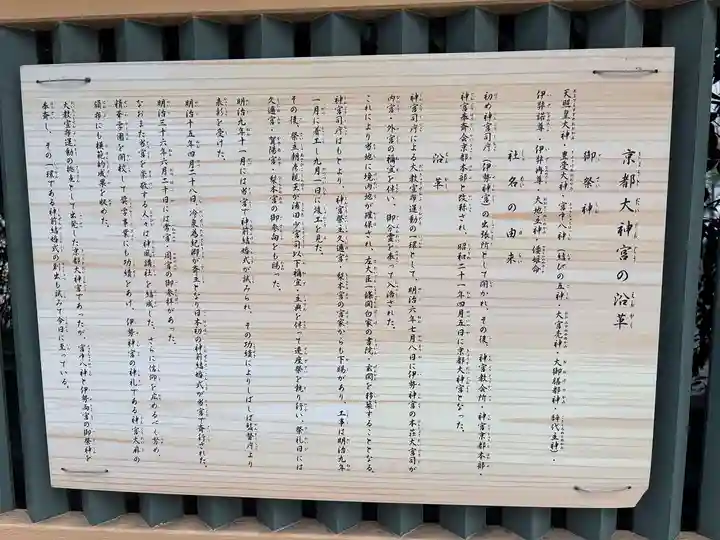 京都大神宮の沿革
御祭神
天照皇大神・豊受大神・宮中八神(結びの五神・大宮売神・大御膳都神・辞代主神)・
伊弉諾尊・伊弉冉尊・大地主神・倭姫命
社名の由来
初め神宮司庁(伊勢神宮)の出張所として開かれ、その後、神宮教会所・神宮京都本部・
神宮奉斉会京都本部と改称され、昭和二十一年四月五日に京都大神宮となった。
沿革
神宮司庁による大教宣布運動の一環として、明治六年七月八日に伊勢神宮の本荘大宮司が
内宮・外宮の禰宜を伴い、御分霊を奉って入洛された。
これにより当地に境内地が確保され、左大臣一條関白家の書院・玄関を移築することとなる。
神宮司庁はもとより、神宮祭主久邇宮・梨本宮の宮家からも下賜があり、工事は明治九年
一月に着工し九月一日に竣工を見た。
その後、祭主朝彦親王が浦田少宮司以下禰宜・主典を伴って遷座祭を執り行い、祭礼日には
久邇宮・賀陽宮・梨本宮の御参向をも賜った。
明治九年十一月には当宮で神前結婚式が試みられ、その功績によりしばしば監督庁より
表彰を受けた。
明治十五年四月二十八日、冷泉為紀卿が斎主となり日本初の神前結婚式が当宮で斉行された。
明治三十六年六月二十二日には常宮・周宮の御参拝があった。
なおまた当宮を崇敬する人々は神風講社を結成した。さらに信仰を広めるべく努め、
精華学園を開校して奨学事業にも功績をあげ、伊勢神宮の神札である神宮大麻の
頒布にも模範的成果を収めた。
大教宣布運動の拠点として出発した京都大神宮であったが、宮中八神と伊勢両宮の御祭神を
奉斉し、その一環である神前結婚式の創始も試みて今日に至っている。